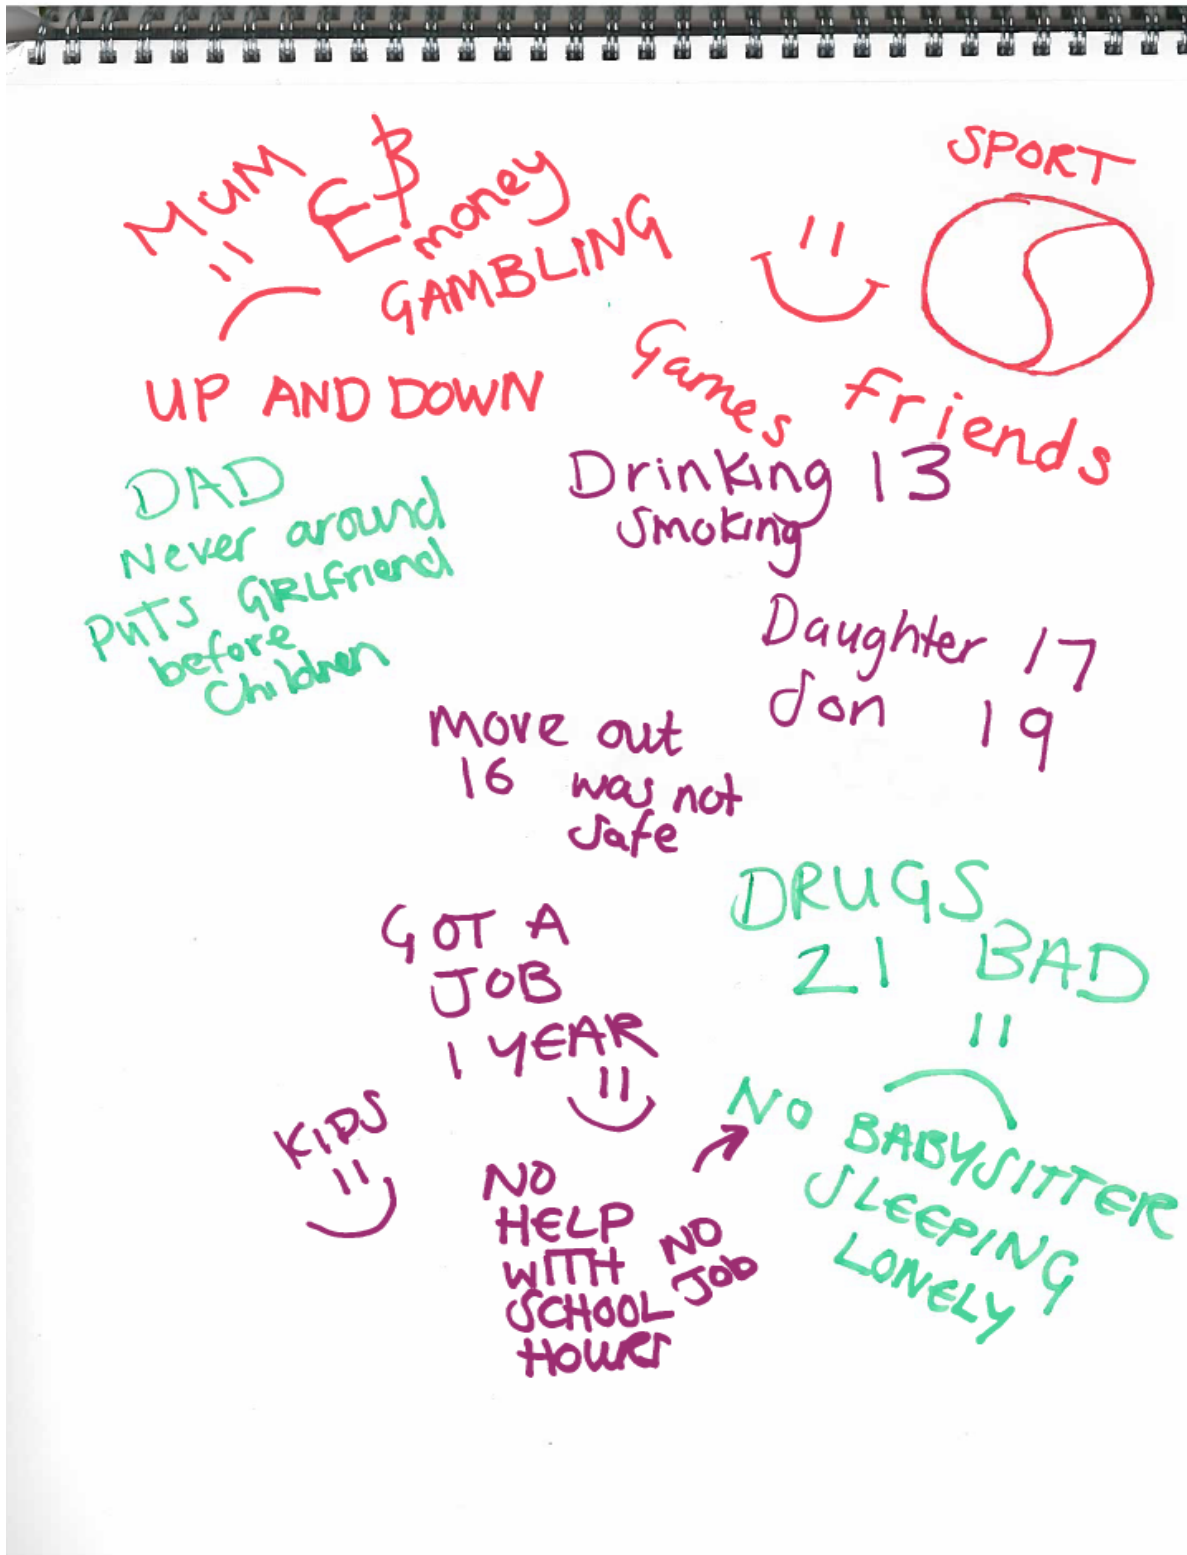 MUM
£$
money
GAMBLING
UP AND DOWN
SPORT
Games
friends
DAD
Never around
PUTS GIRLfriend
before
children
Drinking 13
smoking
Daughter 17
Son 19
Move out
16 was not
safe
GOT A
JOB
1 YEAR
DRUGS
21 BAD
KIDS
NO
HELP
WITH
SCHOOL
HOURS
NO
JOb
NO BABYSITTER
SLEEPING
LONELY